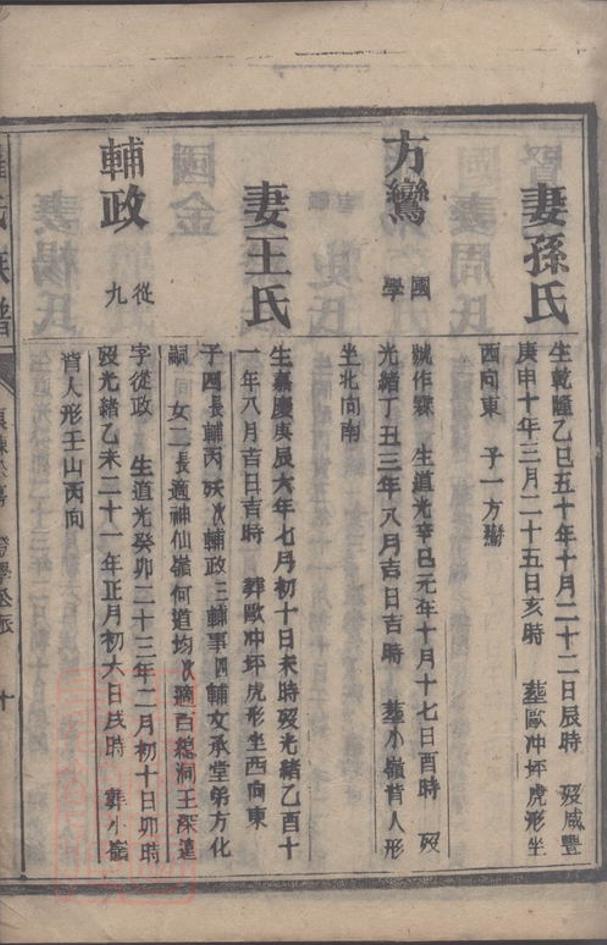 妻孫氏
生乾隆乙巳五十年十月二十二日辰時　歿咸豐
庚申十年三月二十五日亥時　葬歐冲坪虎形坐
西向東　子一方鸞
方鸞　國學
號作霖　生道光辛巳元年十月十七日酉時　歿
光緒丁丑三年八月吉日吉時　葬小嶺背人形
坐北向南
妻王氏
生嘉慶庚辰六年七月初十日未時歿光緒乙酉十
一年八月吉日吉時　葬歐冲坪虎形坐西向東
子四長輔丙歿次輔政三輔事四輔文承堂弟方化
嗣　女二長適神仙嶺何道均次適百穏洞王深遠
輔政　從九
字從政　生道光癸卯二十三年二月初十日卯時
歿光緒乙未二十一年正月初六日戌時　葬小嶺
背人形壬山丙向
氏族譜